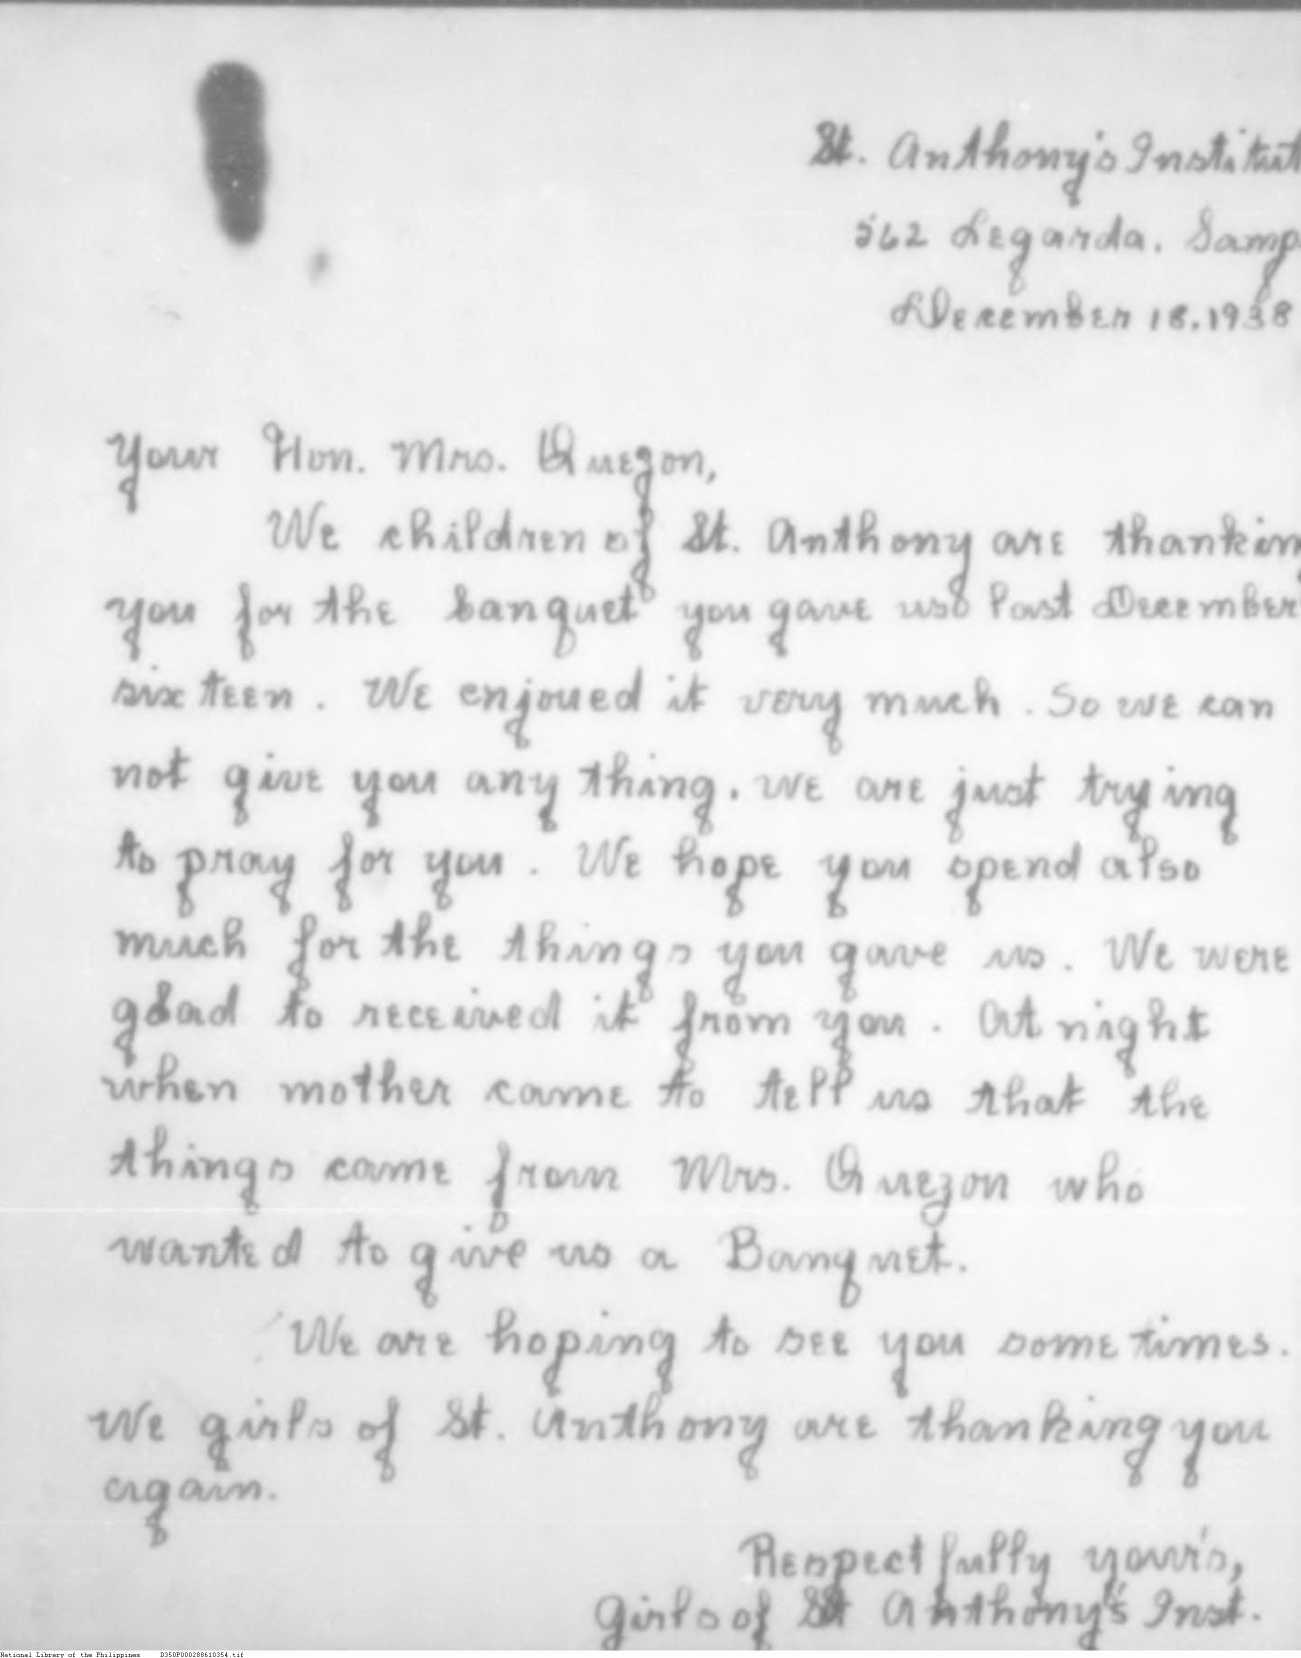 St. Anthony's Institut
562 Legarda. Samp
December 18.1938
Your Hon. Mrs. Quezon,
We children of St. Anthony are thankin
you for the banquet you gave us last December
six teen. We enjoued it very much. So we can
not give you any thing. We are just trying
to pray for you. We hope you spend also
much for the things you gave us. We were
glad to received it from you. At night
when mother came to tell us that the
things came from Mrs. Quezon who
wanted to give us a Banquet.
We are hoping to see you some times.
We girls of St. Anthony are thanking you
again.
Respectfully your's,
Girls of St Anthony's Inst.
National Library of the Philippines D350P000288610354.tif